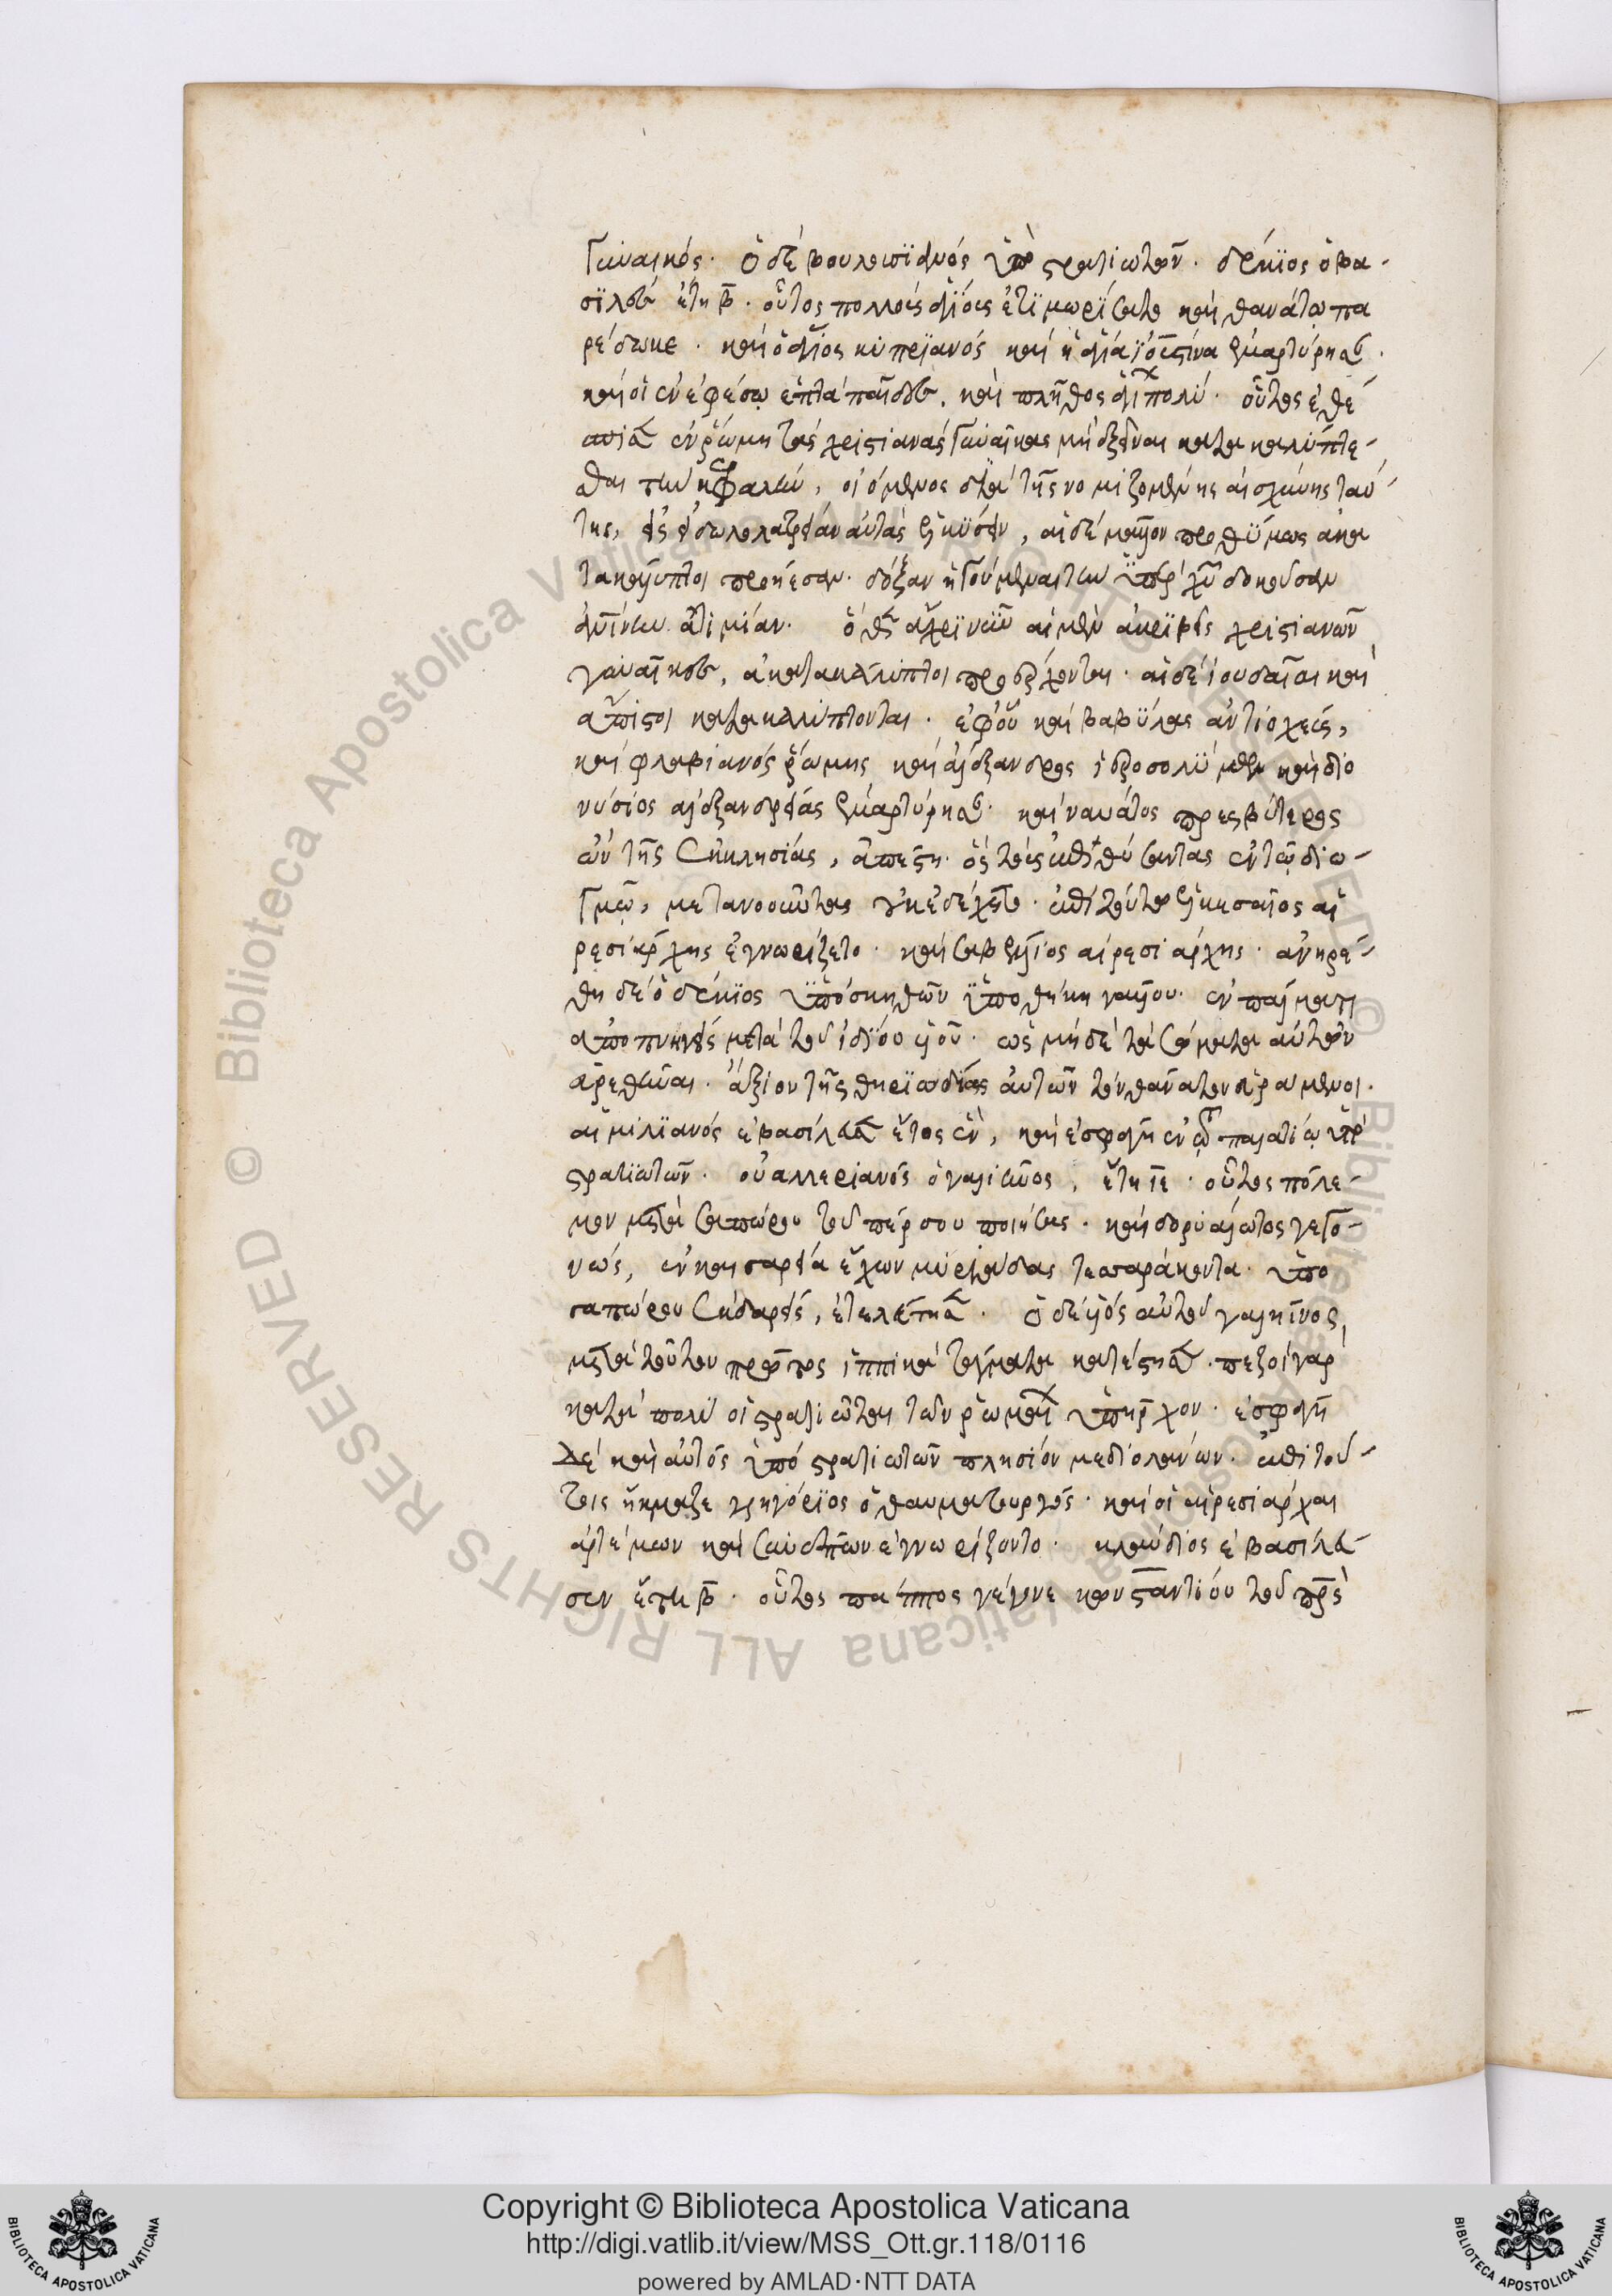 γυναικός. ὁ δὲ βουλουσιανὸς ὑπὸ στρατιωτῶν. δέκιος ὁ βα-
σϊλεὺς ἔτη β. οὗτος πολλοὺς ἁγίους ἐτϊμωρήσατο καὶ θανάτω πα
ρέδωκε. καὶ ὁ ἅγιος κυπρϊανὸς καὶ ἡ ἁγία ϊουστίνα ἐμαρτύρησαν.
καὶ οἱ ἐν ἐφέσῳ ἑπτὰ παῖδες, καὶ πλῆθος ἁγι πολύ. οὗτος ἐθέ
σπισεν ἐν ῥώμη τὰς χριστιανὰς γυναῖκας μὴ ἐξεῖναι κατακαλύπτε-
σθαι τὴν κεφαλὴν, οἰόμενος διὰ τῆς νομιζομένης αἰσχύνης ταύ
της, εἰς εἰδωλολατρείαν αὐτὰς ἑλκύσειν, αἱ δὲ μᾶλλον προθύμως ἀκα
τακάλυπτοι προήεσαν. δόξαν ἡγούμεναι τὴν ὑπὲρ χυ δοκοῦσαν
αὐτῶν ἀτιμίαν. ὅθεν ἄχρϊ νῦν αἱ μὲν ἀκρϊβεῖς χριστιανῶν
γυναῖκες, ἀκατακάλυπτοι προσέρχονται. αἱ δὲ ἰουδαῖαι καὶ
ἄπιστοι κατακαλύπτονται. ἐφ' οὗ καὶ βαβύλας ἀντιοχείας,
καὶ φλαβιανὸς ῥώμης καὶ ἀλέξανδρος ἱεροσολύμων καὶ διο
νύσιος ἀλεξανδρείας ἐμαρτύρησαν. καὶ ναυάτος πρεσβύτερος
ὢν τῆς ἐκκλησίας, ἀπέστη. ὃς τοὺς ἐπιθύσαντας ἐν τῶ διω-
γμῶ, μετανοοῦντας οὐκ ἐδέχετο. ἐπὶ τούτου ἑλκεσαῖος αἱ
ρεσιάρχης ἐγνωρίζετο. καὶ σαβέλλιος αἱρεσιάρχης. ἀνῃρέ-
θη δὲ ὁ δέκϊος ὑπὸ σκηθῶν ὑποθήκη γάλλου. ἐν παλματι
ἀποπνιγεὶς μετὰ τοῦ ἰδίου υἱοῦ. ὡς μηδὲ τὰ σώματα αὐτῶν
εὑρεθῆναι. ἄξιον τῆς θηρϊωδίας αὐτῶν τὸν θάνατον εὑράμενοι.
αἰμιλϊανὸς ἐβασίλευσεν ἔτος ἓν, καὶ ἐσφάγη ἐν τῶ παλατίω ὑπὸ
στρατιωτῶν. οὐαλλεριανὸς ὁ γαλιῆνος, ἔτη ιε. οὗτος πόλε-
μον μετὰ σαπώρου τοῦ πέρσου ποιήσας. καὶ δορυάλωτος γεγο-
νὼς, ἐν καισαρεία ἔχων μυριάδας τεσσαράκοντα. ὑπὸ
σαπώρου ἐκδαρεὶς, ἐτελεύτησεν. ὁ δὲ υἱὸς αὐτοῦ γαλιῆνος,
μετὰ τοῦτον πρῶτος ἱππικὰ τάγματα κατέστησεν. πεζοὶ γὰρ
κατὰ πολὺ οἱ στρατιῶται τῶν ῥωμαί ὑπῆρχον. ἐσφάγη
δὲ καὶ αὐτὸς ὑπὸ στρατιωτῶν πλησίον μεδιολάνων. ἐπὶ τού-
τοις ἤκμαζε γρηγόριος ὁ θαυματουργός. καὶ οἱ αἱρεσιάρχαι
ἀρτέμων καὶ ἐγνωρίζοντο. κλαύδιος ἐβασίλευ-
σεν ἔτη β. οὗτος πάππος γέγονε κωνσταντίου τοῦ πρς